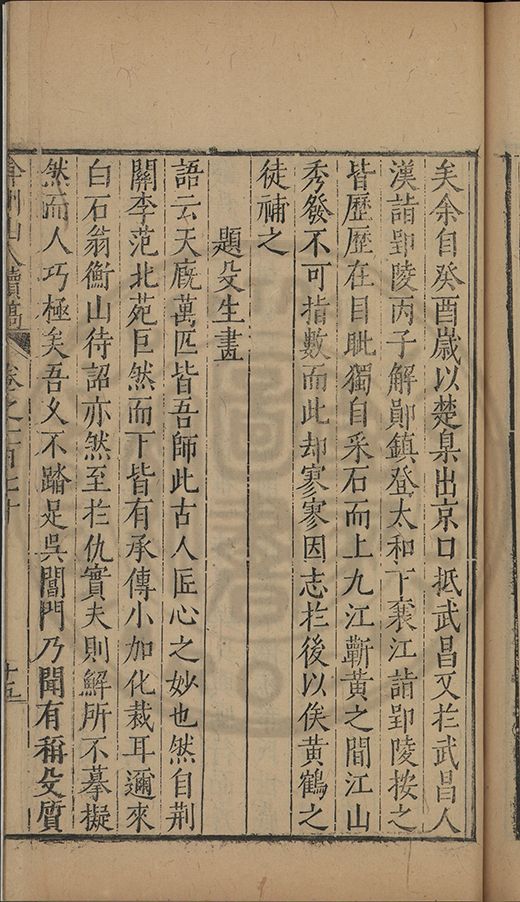 矣余自癸酉歲以楚臬出京口抵武昌又扵武昌入
漢詣郢陵丙子解鄖鎮登太和下襄江詣郢陵按之
皆歷歷在目眦獨自采石而上九江蘄黃之間江山
秀發不可指數而此却寥寥因志扵後以俟黃鶴之
徒補之
題殳生畫
語云天廐萬匹皆吾師此古人匠心之妙也然自荆
關李范北苑巨然而下皆有承傳小加化裁耳邇來
白石翁衡山待詔亦然至扵仇實夫則解所不摹擬
然而人巧極矣吾乆不踏足吳閶門乃聞有稱殳質
弇州山人續稿
卷之一百七十
十五